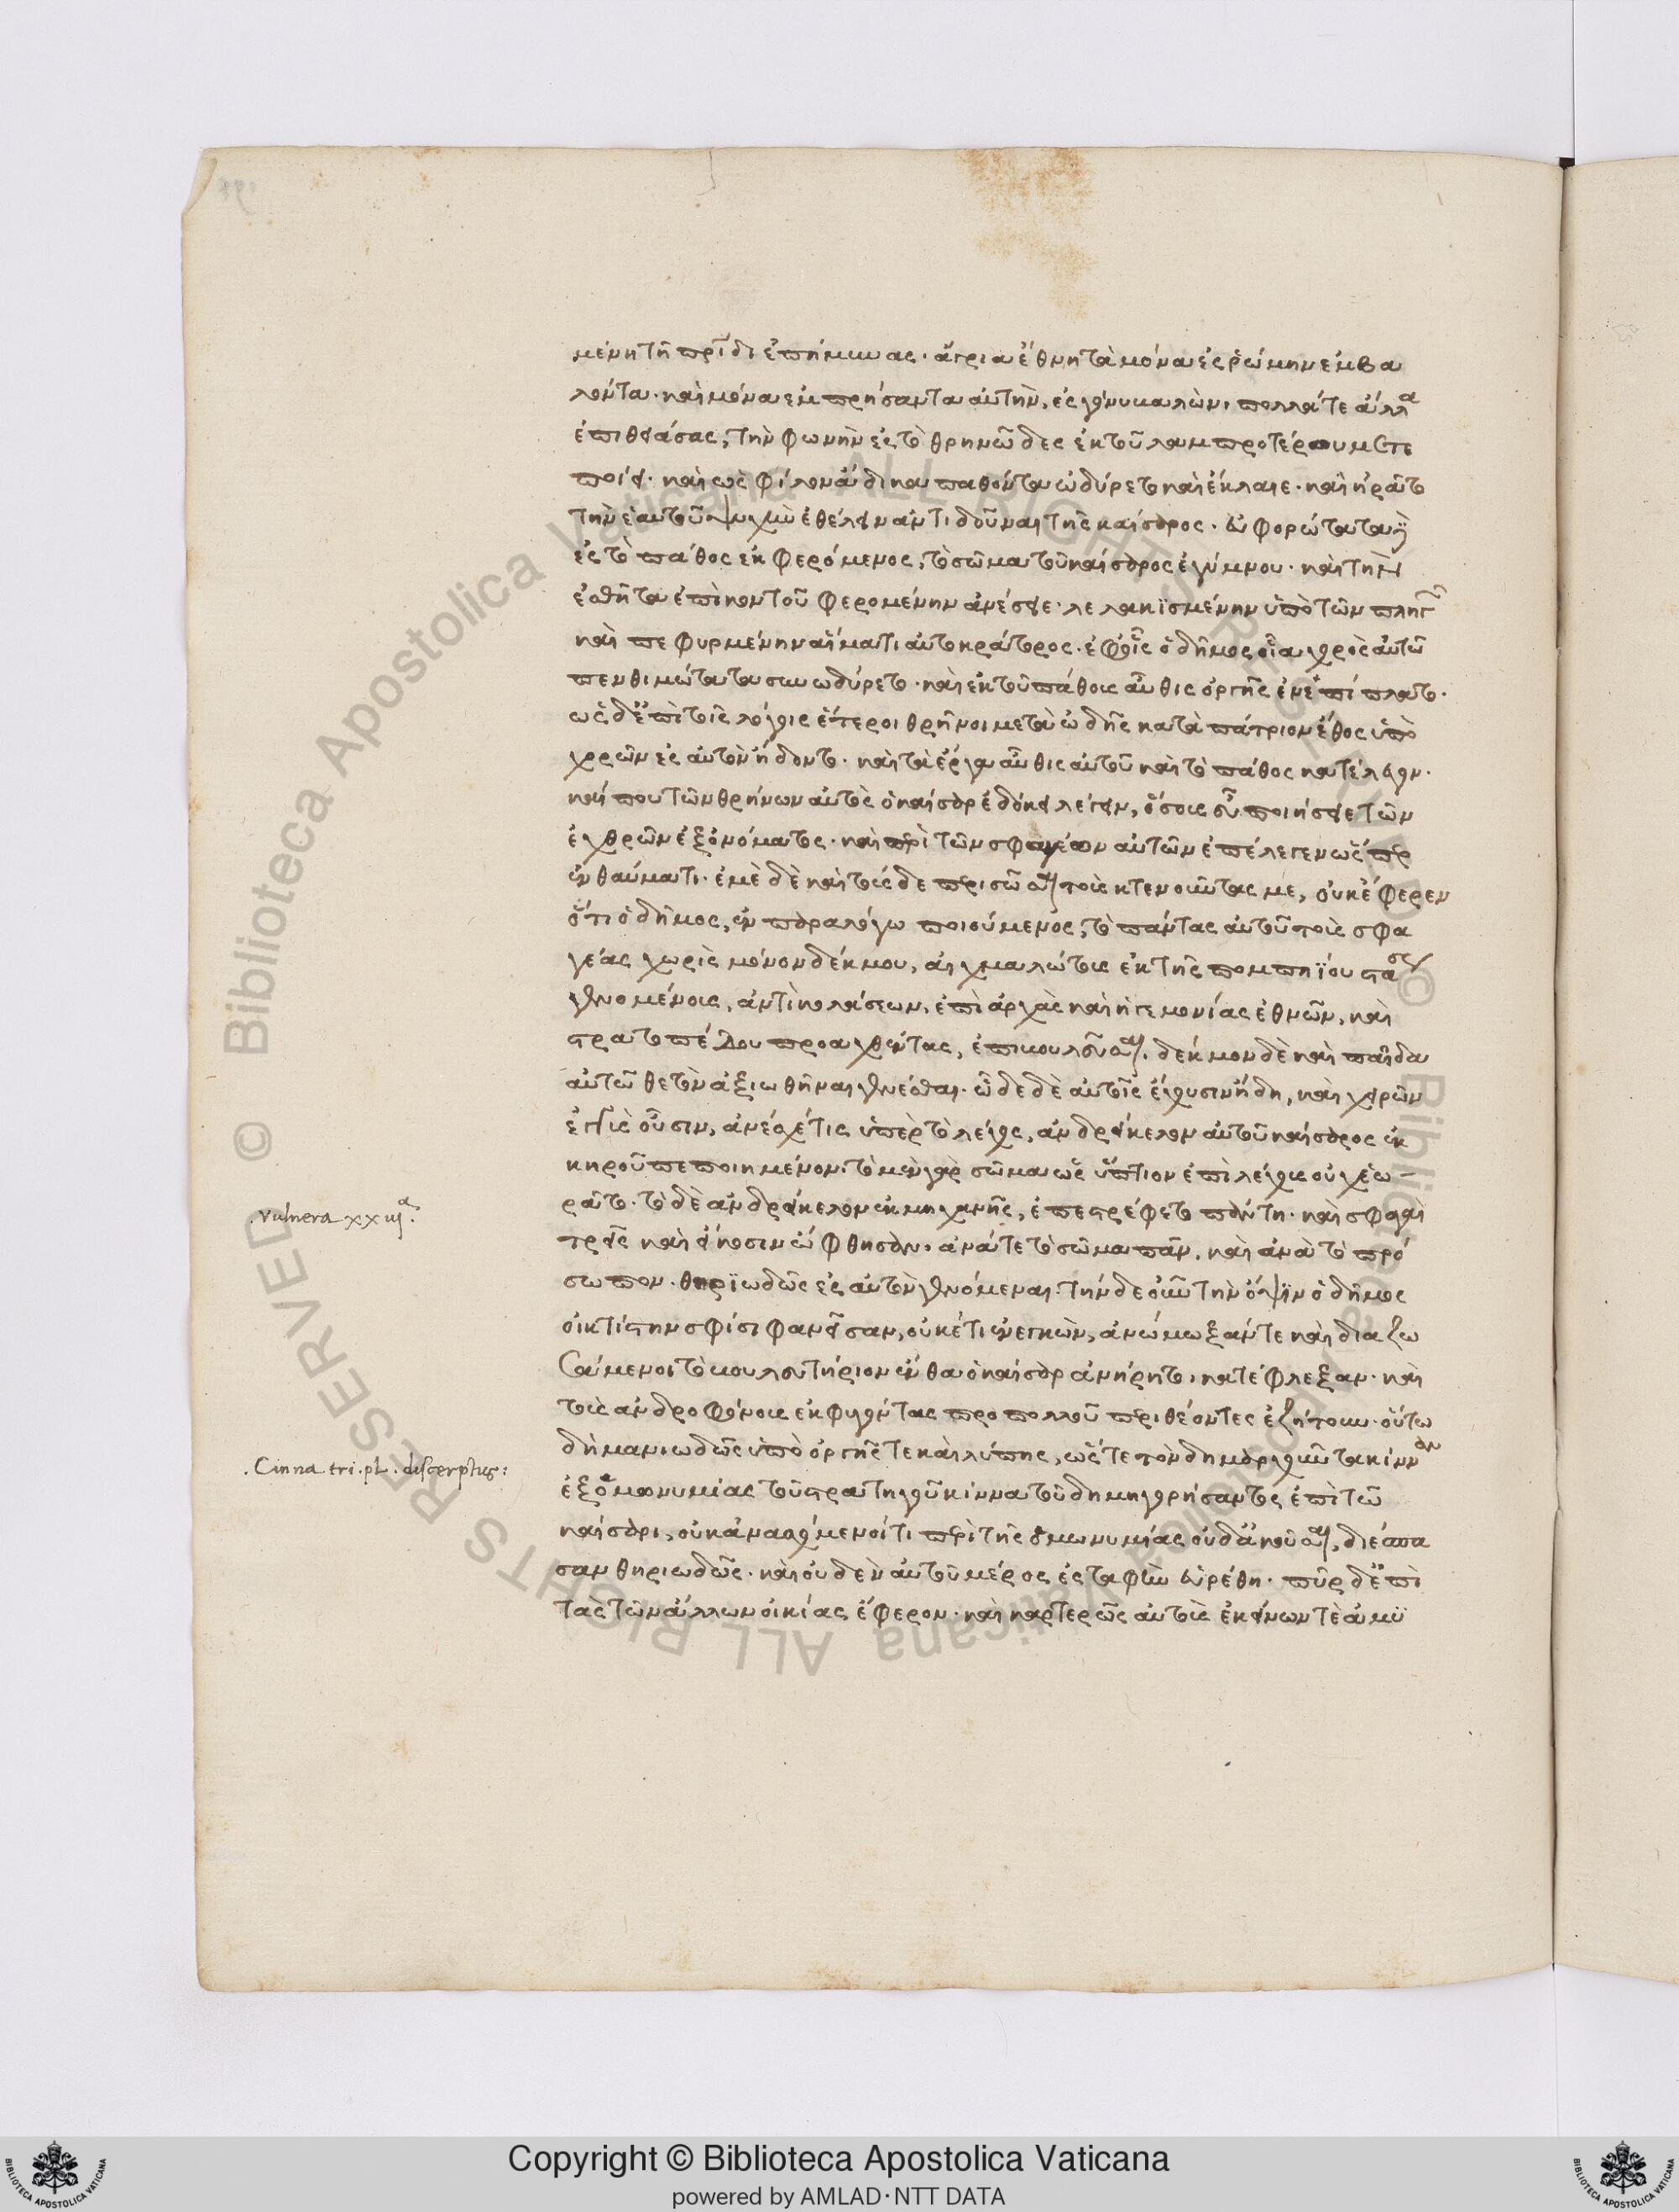 μένη τῆ πρίδι ἐπήμυνας· ἄγρια ἔθνη τὰ μόνα ἐς ῥώμην ἐμβα
λόντα· καὶ μόνα ἐμπρήσαντα αὐτὴν, ἐς γόνυ βαλὼν, πολλά τε ἄλλα
ἐπιθειάσας, τὴν φωνὴν ἐς τὸ θρηνῶδες ἐκ τοῦ λαμπροτέρου μετε
ποίει· καὶ ὡς φίλον ἄδικα παθόντα ὠδύρετο καὶ ἔκλαιε· καὶ ἠρᾶτο
τὴν ἑαυτοῦ ψυχὴν ἐθέλειν ἀντιδοῦναι τῆς καίσαρος· εὐφορώτατα δὲ
ἐς τὸ πάθος ἐκφερόμενος, τὸ σῶμα τοῦ καίσαρος ἐγύμνου· καὶ τὴν
ἐσθῆτα ἐπὶ κοντοῦ φερομένην ἀνέσειε· λελακϊσμένην ὑπὸ τῶν πληγῶν
καὶ πεφυρμένην αἵματι αὐτοκράτορος· ἐφοἷς ὁ δῆμος οἷα χορὸς αὐτῶ
πενθιμώτατα συνωδύρετο· καὶ ἐκ τοῦ πάθους αὖθις ὀργῆς ἐνεπίπλατο·
ὡς δἐπὶ τοῖς λόγοις ἕτεροι θρῆνοι μετὰ ὠδῆς κατὰ πάτριον ἔθος ὑπὸ
χορῶν ἐς αὐτὸν ἤδοντο· καὶ τὰ ἔργα αὖθις αὐτοῦ καὶ τὸ πάθος κατέλεγον·
καί που τῶν θρήνων αὐτὸς ὁ καίσαρ ἐδόκει λέγειν, ὅσους εὖ ποιήσειε τῶν
ἐχθρῶν ἐξ ὀνόματος· καὶ περὶ τῶν σφαγέων αὐτῶν ἐπέλεγεν ὥσπερ
ἐν θαύματι· ἐμὲ δὲ καὶ τούσδε περισῶσαι τοὺς κτενοῦντας με, οὐκ ἔφερεν
ὅτι ὁ δῆμος, ἐν παραλόγω ποιούμενος, τὸ πάντας αὐτοῦ τοὺς σφα
γέας χωρὶς μόνον δέκμου, αἰχμαλώτους ἐκ τῆς πομπηΐου στάσεως
γενομένους, ἀντὶ κολάσεων, ἐπὶ ἀρχὰς καὶ ἡγεμονίας ἐθνῶν, καὶ
στρατοπέδου προαχθέντας, ἐπιβουλεῦσαι, δέκμον δὲ καὶ παῖδα
αὐτῶ θετὸν ἀξιωθῆναι γενέσθαι· ὧδε δὲ αὐτοῖς ἔχουσιν ἤδη, καὶ χειρῶν
ἐγγὺς οὖσιν, ἀνέσχέ τις ὑπὲρ τὸ λέχος, ἀνδρείκελον αὐτοῦ καίσαρος ἐκ
κηροῦ πεποιημένον· τὸ μὲν γὰρ σῶμα ὡς ὕπτιον ἐπὶ λέχους οὐχ ἑω
ρᾶτο· τὸ δὲ ἀνδρείκελον ἐκ μηχανῆς, ἐπεστρέφετο πάντη· καὶ σφαγαὶ
τρεῖς καὶ εἴκοσιν ὤφθησαν· ἀνά τε τὸ σῶμα πᾶν, καὶ ἀνὰ τὸ πρό
σωπον· θηρϊωδῶς ἐς αὐτὸν γενόμεναι· τήνδε οὖν τὴν ὄψϊν ὁ δῆμος
οἰκτίστην σφίσι φανεῖσαν, οὐκέτι ἐνεγκὼν, ἀνώμωξάν τε καὶ διαζω
σάμενοι τὸ βουλευτήριον ἔνθα ὁ καίσαρ ἀνήρητο, κατέφλεξαν· καὶ
τοὺς ἀνδροφόνους ἐκφυγόντας πρὸ πολλοῦ περιθέοντες ἐζήτουν· οὕτω
δὴ μανιωδῶς ὑπὸ ὀργῆς τε καὶ λύπης, ὥστε τὸν δημαρχοῦντα κίνναν
ἐξ ὁμωνυμίας τοῦ στρατηγοῦ κίννα τοῦ δημηγορήσαντος ἐπὶ τῶ
καίσαρι, οὐκ ἀνασχόμενοί τι περὶ τῆς ὁμωνυμίας οὐδἀκοῦσαι, διέσπα
σαν θηριωδῶς· καὶ οὐδὲν αὐτοῦ μέρος ἐς ταφὴν εὑρέθη· πῦρ δἐπὶ
τὰς τῶν ἄλλων οἰκίας ἔφερον· καὶ καρτερῶς αὐτοὺς ἐκείνων τὲ ἀμϋ
. vulnera xxiij.a
. Cinna tri. pl. discerptus:
© Biblioteca Apostolica Vaticana ALL RIGHTS RESERVED
Copyright © Biblioteca Apostolica Vaticana
powered by AMLAD·NTT DATA
BIBLIOTECA APOSTOLICA VATICANA
BIBLIOTECA APOSTOLICA VATICANA